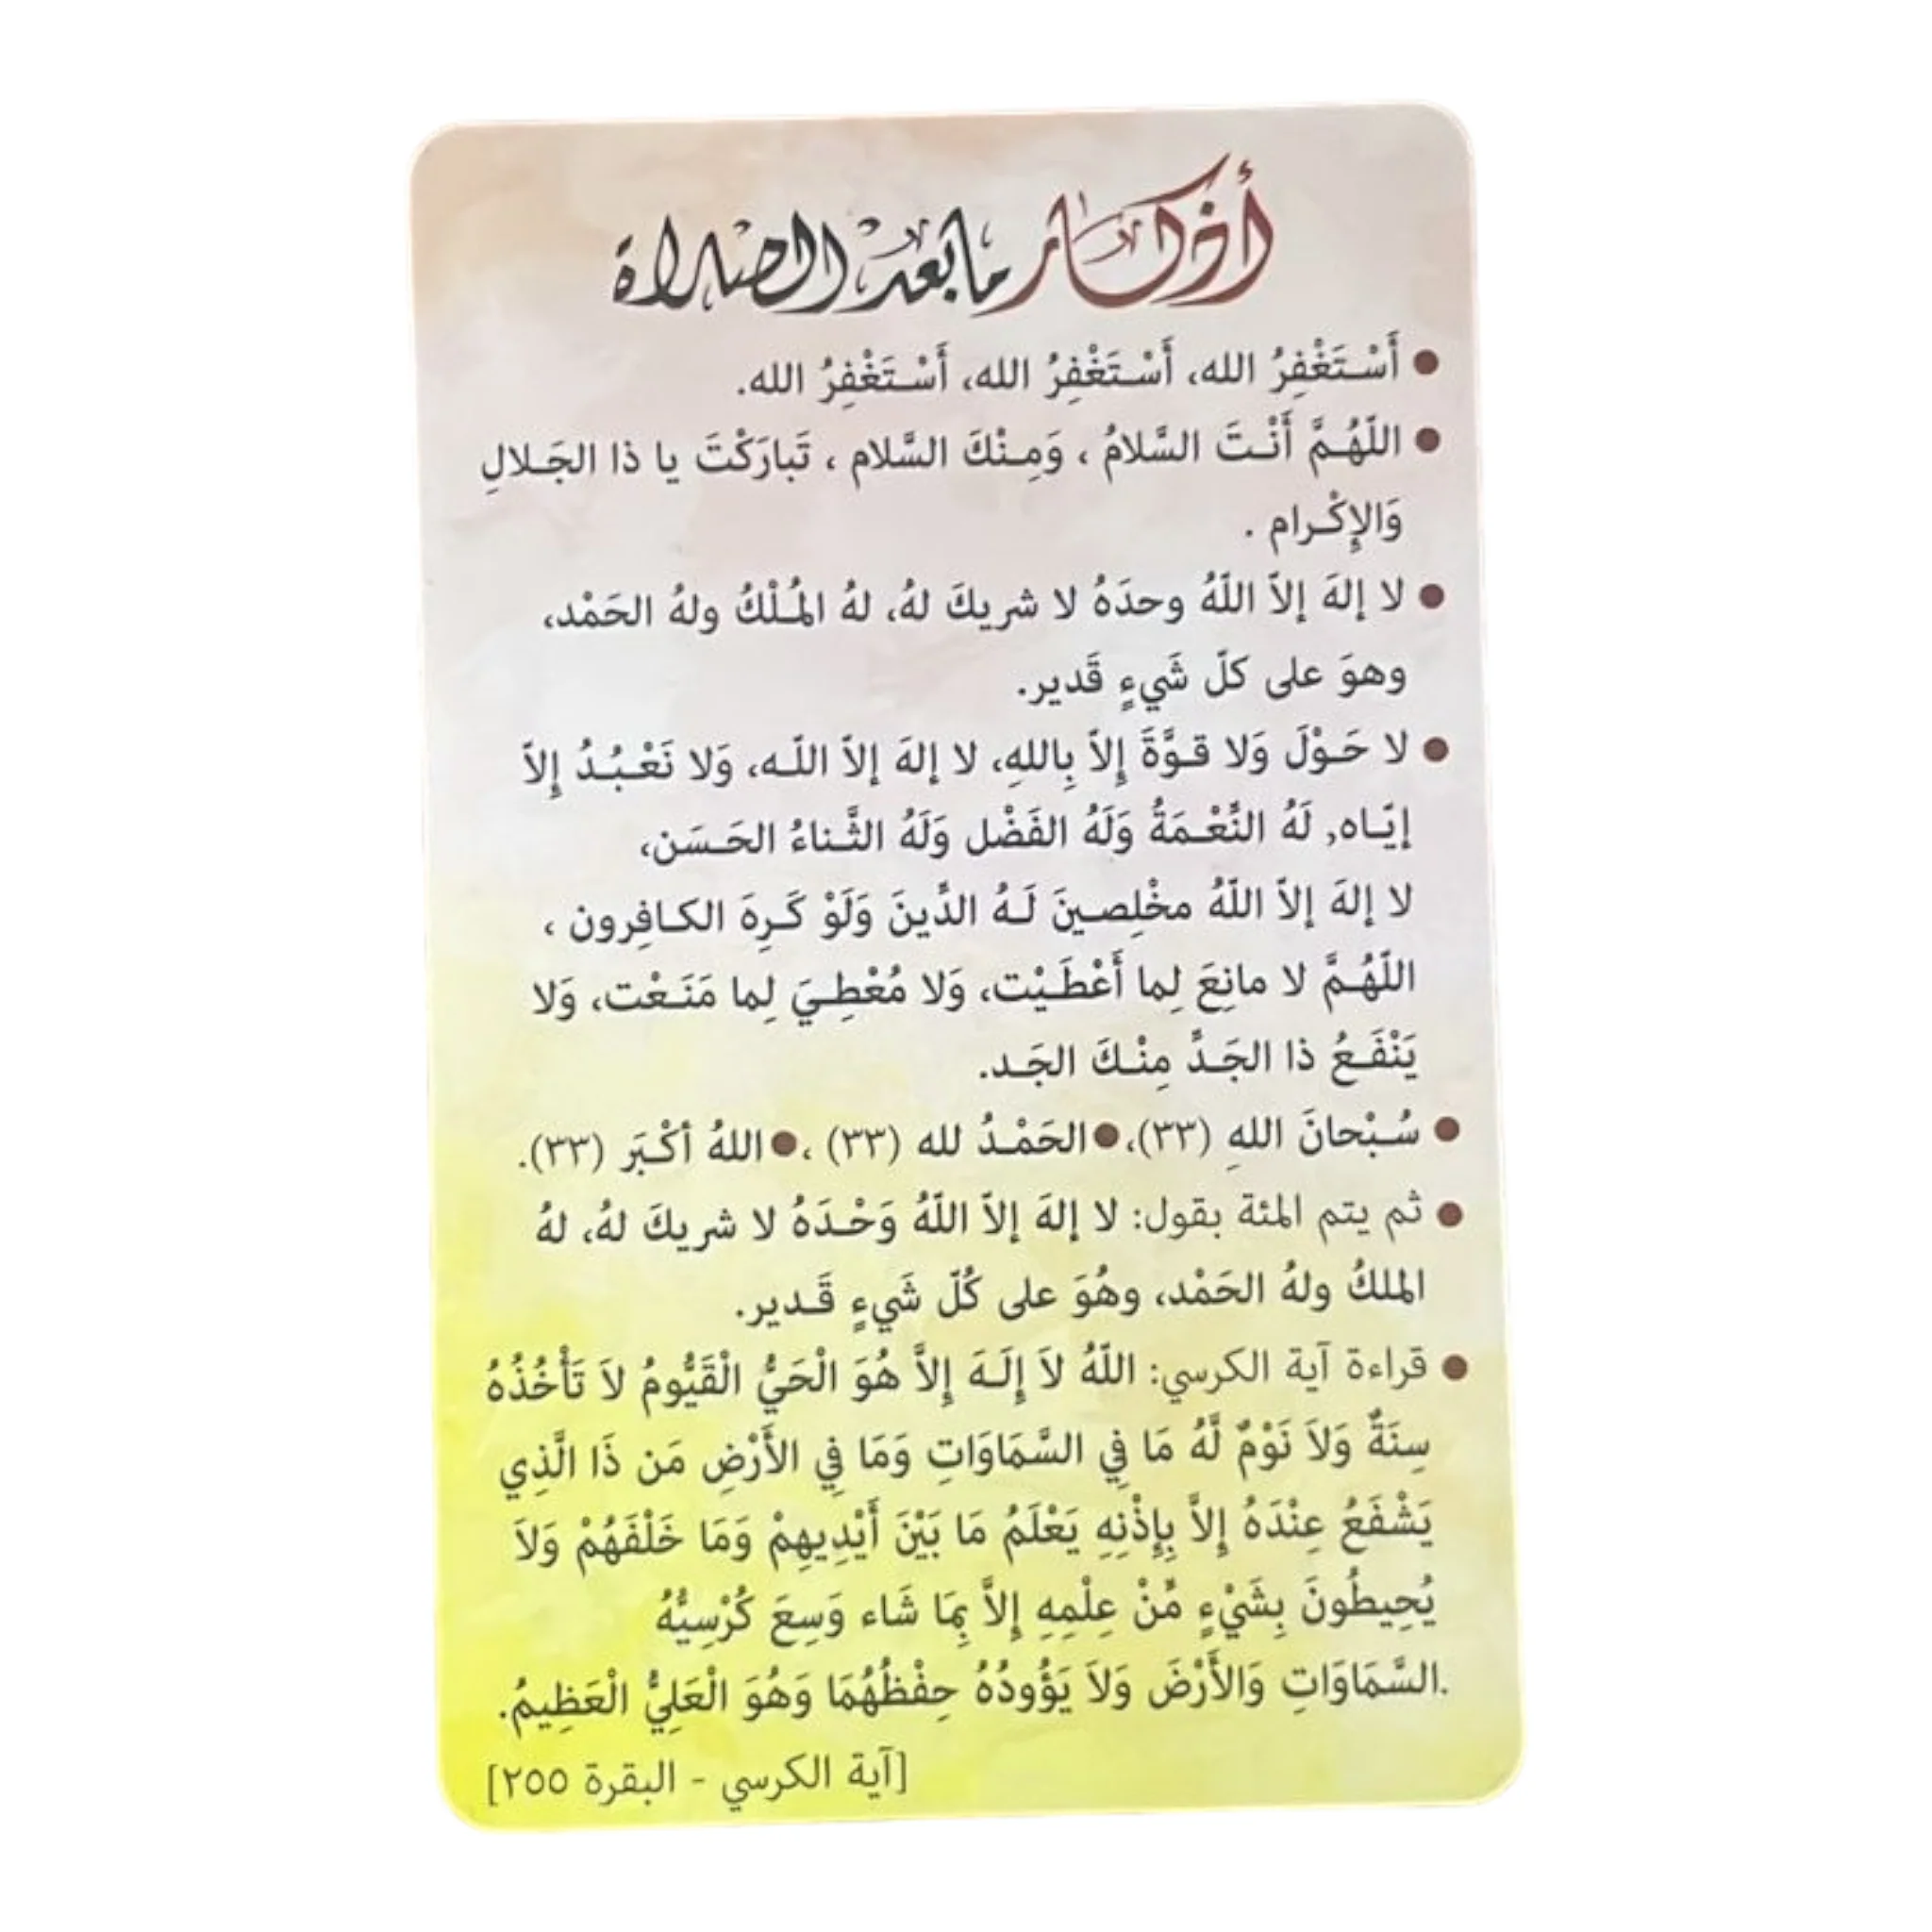 أذكار ما بعد الصلاة
● أَسْـتَغْفِرُ الله، أَسْـتَغْفِرُ الله، أَسْـتَغْفِرُ الله.
● اللّهُـمَّ أَنْـتَ السَّلامُ ، وَمِـنْكَ السَّلام ، تَبارَكْتَ يا ذا الجَـلالِ
وَالإِكْـرام .
● لا إلهَ إلاّ اللّهُ وحدَهُ لا شريكَ لهُ، لهُ المُـلْكُ ولهُ الحَمْد،
وهوَ على كلّ شَيءٍ قَدير.
● لا حَـوْلَ وَلا قـوَّةَ إِلاّ بِاللهِ، لا إلهَ إلاّ اللّـه، وَلا نَعْـبُـدُ إِلاّ
إيّـاه, لَهُ النِّعْـمَةُ وَلَهُ الفَضْل وَلَهُ الثَّـناءُ الحَـسَن،
لا إلهَ إلاّ اللّهُ مخْلِصـينَ لَـهُ الدِّينَ وَلَوْ كَـرِهَ الكـافِرون ،
اللّهُـمَّ لا مانِعَ لِما أَعْطَـيْت، وَلا مُعْطِـيَ لِما مَنَـعْت، وَلا
يَنْفَـعُ ذا الجَـدِّ مِنْـكَ الجَـد.
● سُـبْحانَ اللهِ (٣٣)، ● الحَمْـدُ لله (٣٣) ، ● اللهُ أكْـبَر (٣٣).
● ثم يتم المئة بقول: لا إلهَ إلاّ اللّهُ وَحْـدَهُ لا شريكَ لهُ، لهُ
الملكُ ولهُ الحَمْد، وهُوَ على كُلّ شَيءٍ قَـدير.
● قراءة آية الكرسي: اللّهُ لاَ إِلَـهَ إِلاَّ هُوَ الْحَيُّ الْقَيُّومُ لاَ تَأْخُذُهُ
سِنَةٌ وَلاَ نَوْمٌ لَّهُ مَا فِي السَّمَاوَاتِ وَمَا فِي الأَرْضِ مَن ذَا الَّذِي
يَشْفَعُ عِنْدَهُ إِلاَّ بِإِذْنِهِ يَعْلَمُ مَا بَيْنَ أَيْدِيهِمْ وَمَا خَلْفَهُمْ وَلاَ
يُحِيطُونَ بِشَيْءٍ مِّنْ عِلْمِهِ إِلاَّ بِمَا شَاء وَسِعَ كُرْسِيُّهُ
.السَّمَاوَاتِ وَالأَرْضَ وَلاَ يَؤُودُهُ حِفْظُهُمَا وَهُوَ الْعَلِيُّ الْعَظِيمُ.
[آية الكرسي - البقرة ٢٥٥]